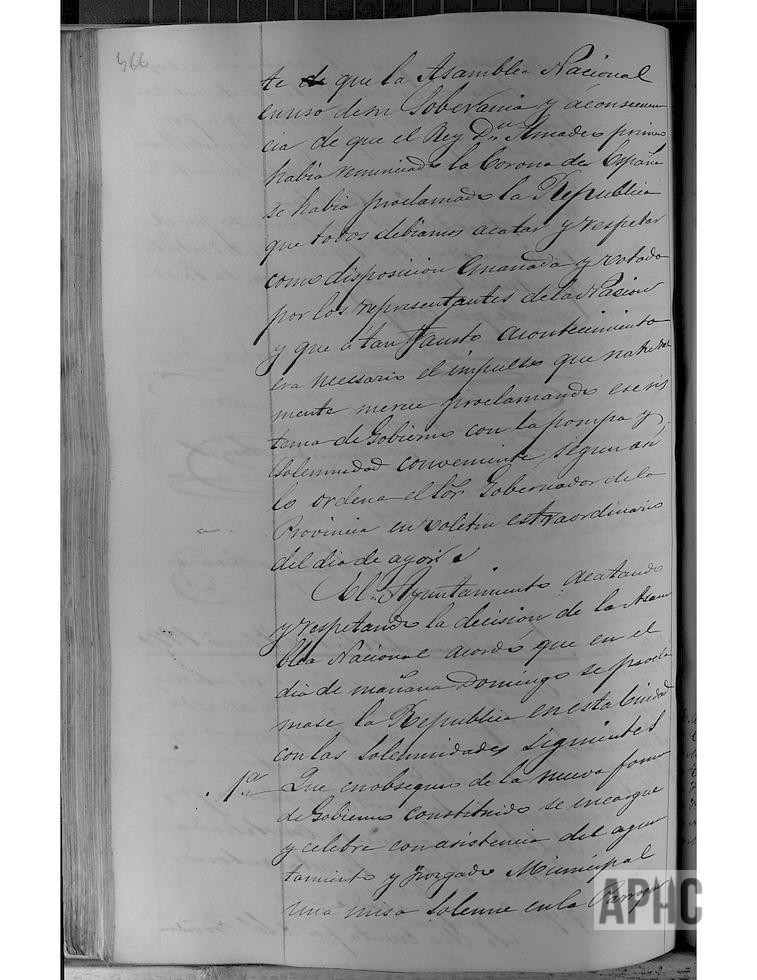 466
te de que la Asamblea Nacional
en uso de su Soberania y á consecuen
cia de que el Rey Dn. Amadeo primero
habia renunciado la Corona de España
se habia proclamado la Republica
que todos debiamos acatar y respetar
como disposicion emanada y votada
por los representantes de la Nacion
y que á tan fausto acontecimiento
era necesario el impulso que natural
mente merece proclamando ese sis
tema de Gobierno con la pompa y
Solemnidad conveniente, segun asi
lo ordena el Sor. Gobernador de la
Provincia en boletin estraordinario
del dia de ayer.
El Ayuntamiento acatando
y respetando la decision de la Asam
blea Nacional acordó que en el
dia de mañana Domingo se procla
mase la Republica en esta Ciudad
con las Solemnidades siguientes
1.a Que en obsequio de la nueva forma
de Gobierno constituido se encargue
y celebre con asistencia del ayun
tamiento y Juzgado Municipal
una misa Solemne en la Parroquia
APHC